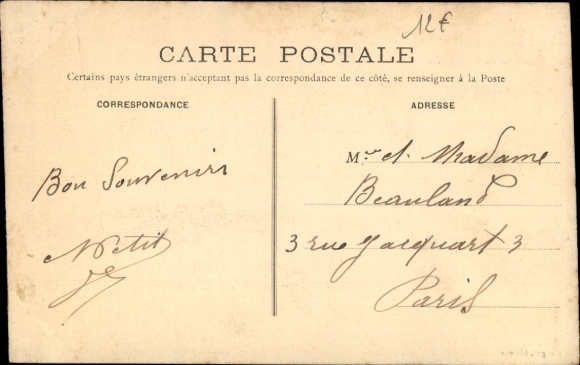 12€
CARTE POSTALE
Certains pays étrangers n'acceptant pas la correspondance de ce côté, se renseigner à la Poste
CORRESPONDANCE
Bon Souvenir
NPetit
ADRESSE
Mr et Madame
Beauland
3 rue Jacquart 3
Paris